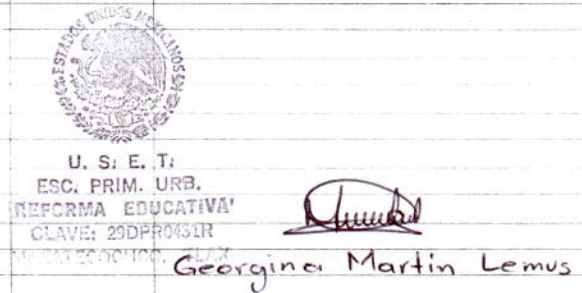 ESTADOS UNIDOS MEXICANOS
U. S. E. T.
ESC. PRIM. URB.
"REFORMA EDUCATIVA"
CLAVE: 29DPR0431R
TLAX.
Georgina Martin Lemus